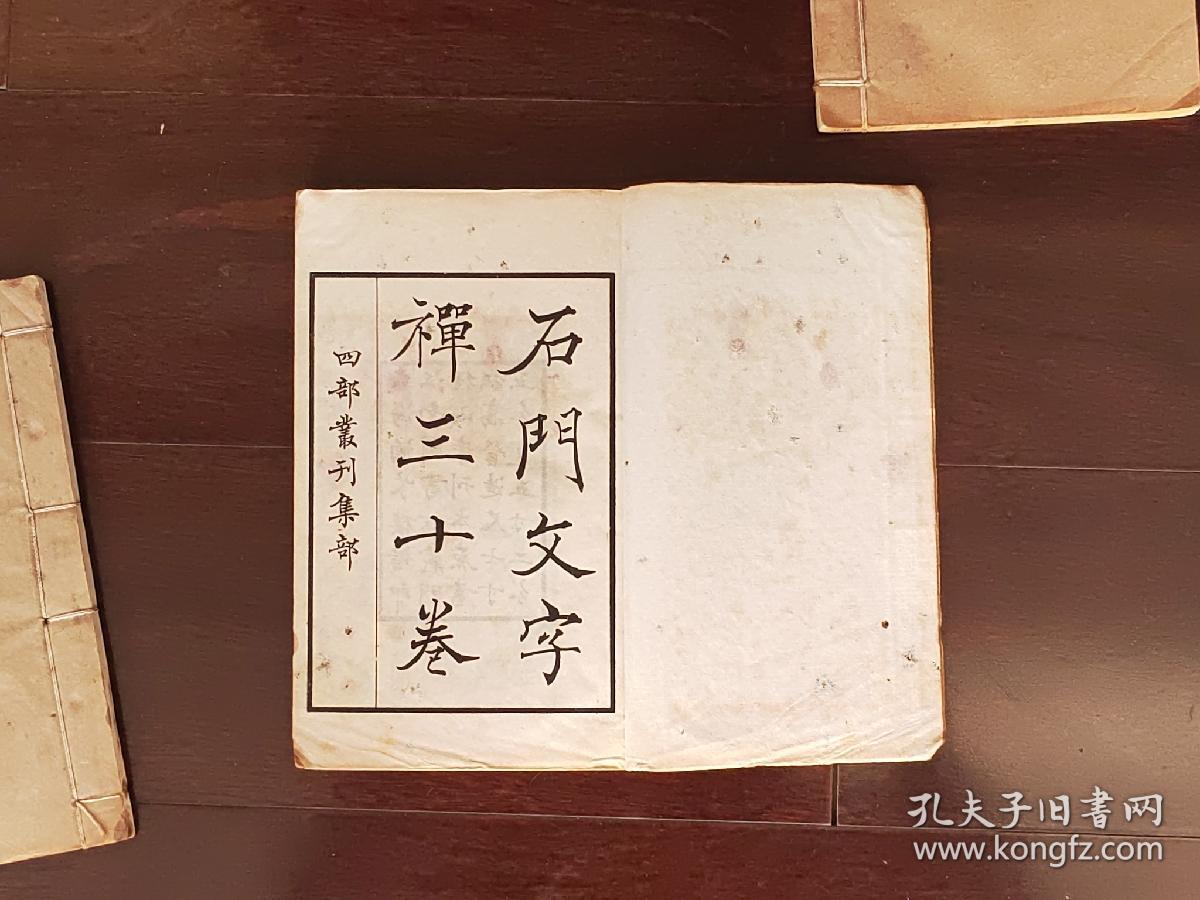 石門文字
禪三十卷
四部叢刊集部
孔夫子旧书网
www.kongfz.com